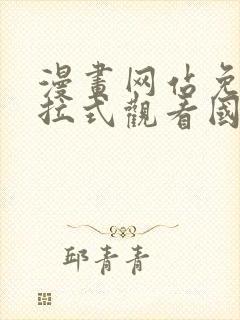 漫畫网佔免
拉式觀看國
邱青青